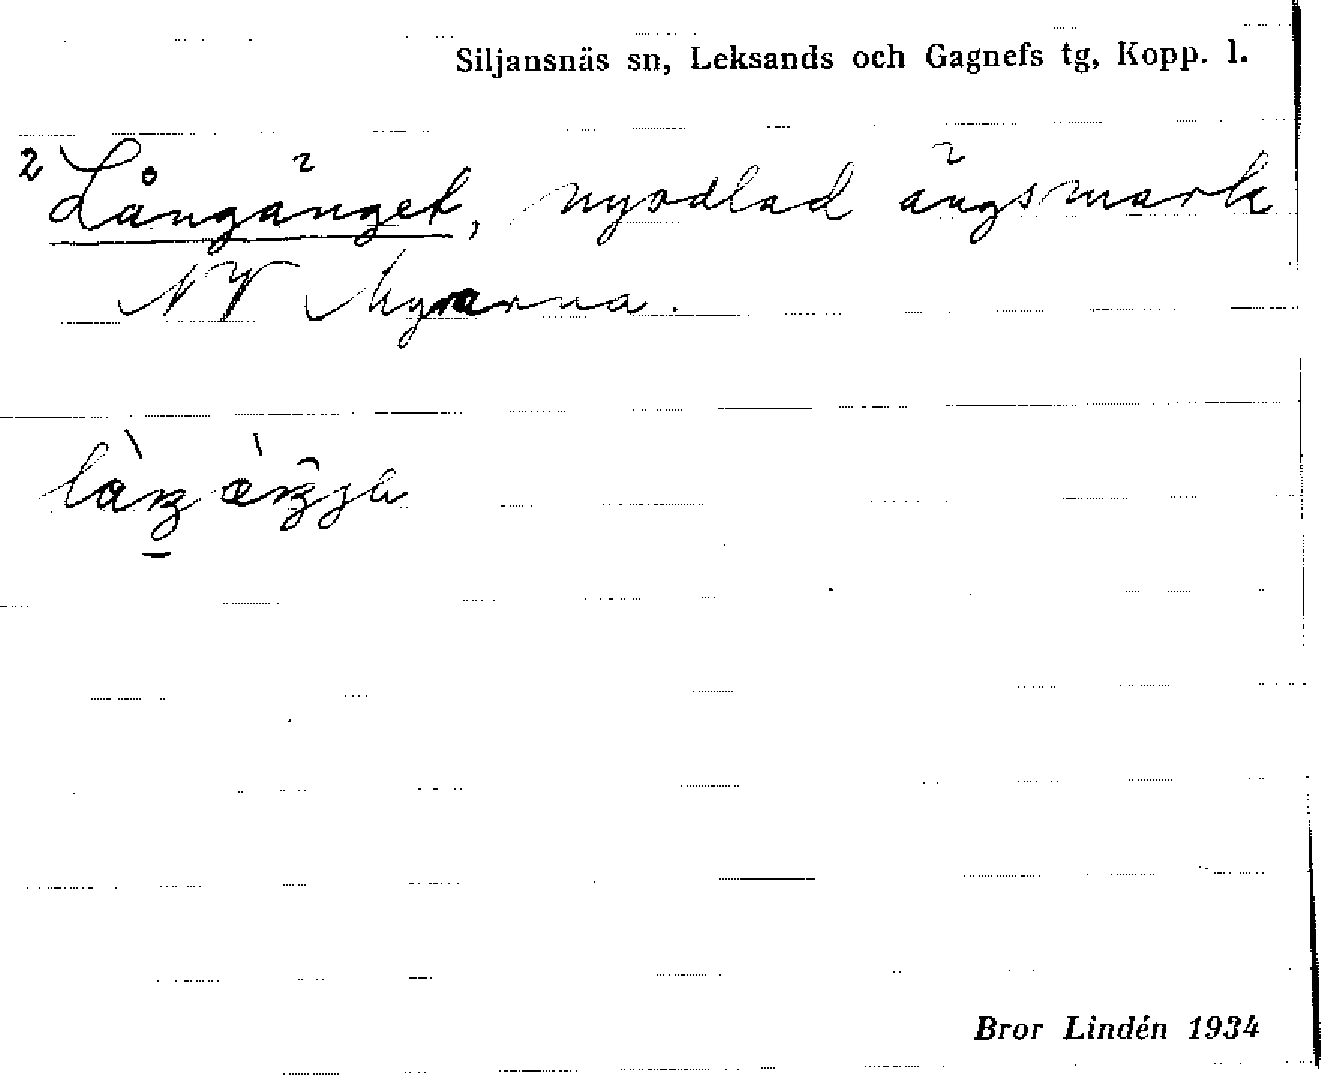 Siljansnäs sn, Leksands och Gagnefs tg, Kopp. l.
2 Långänget, nyodlad ängsmark
NV Myrarna.
Bror Lindén 1934